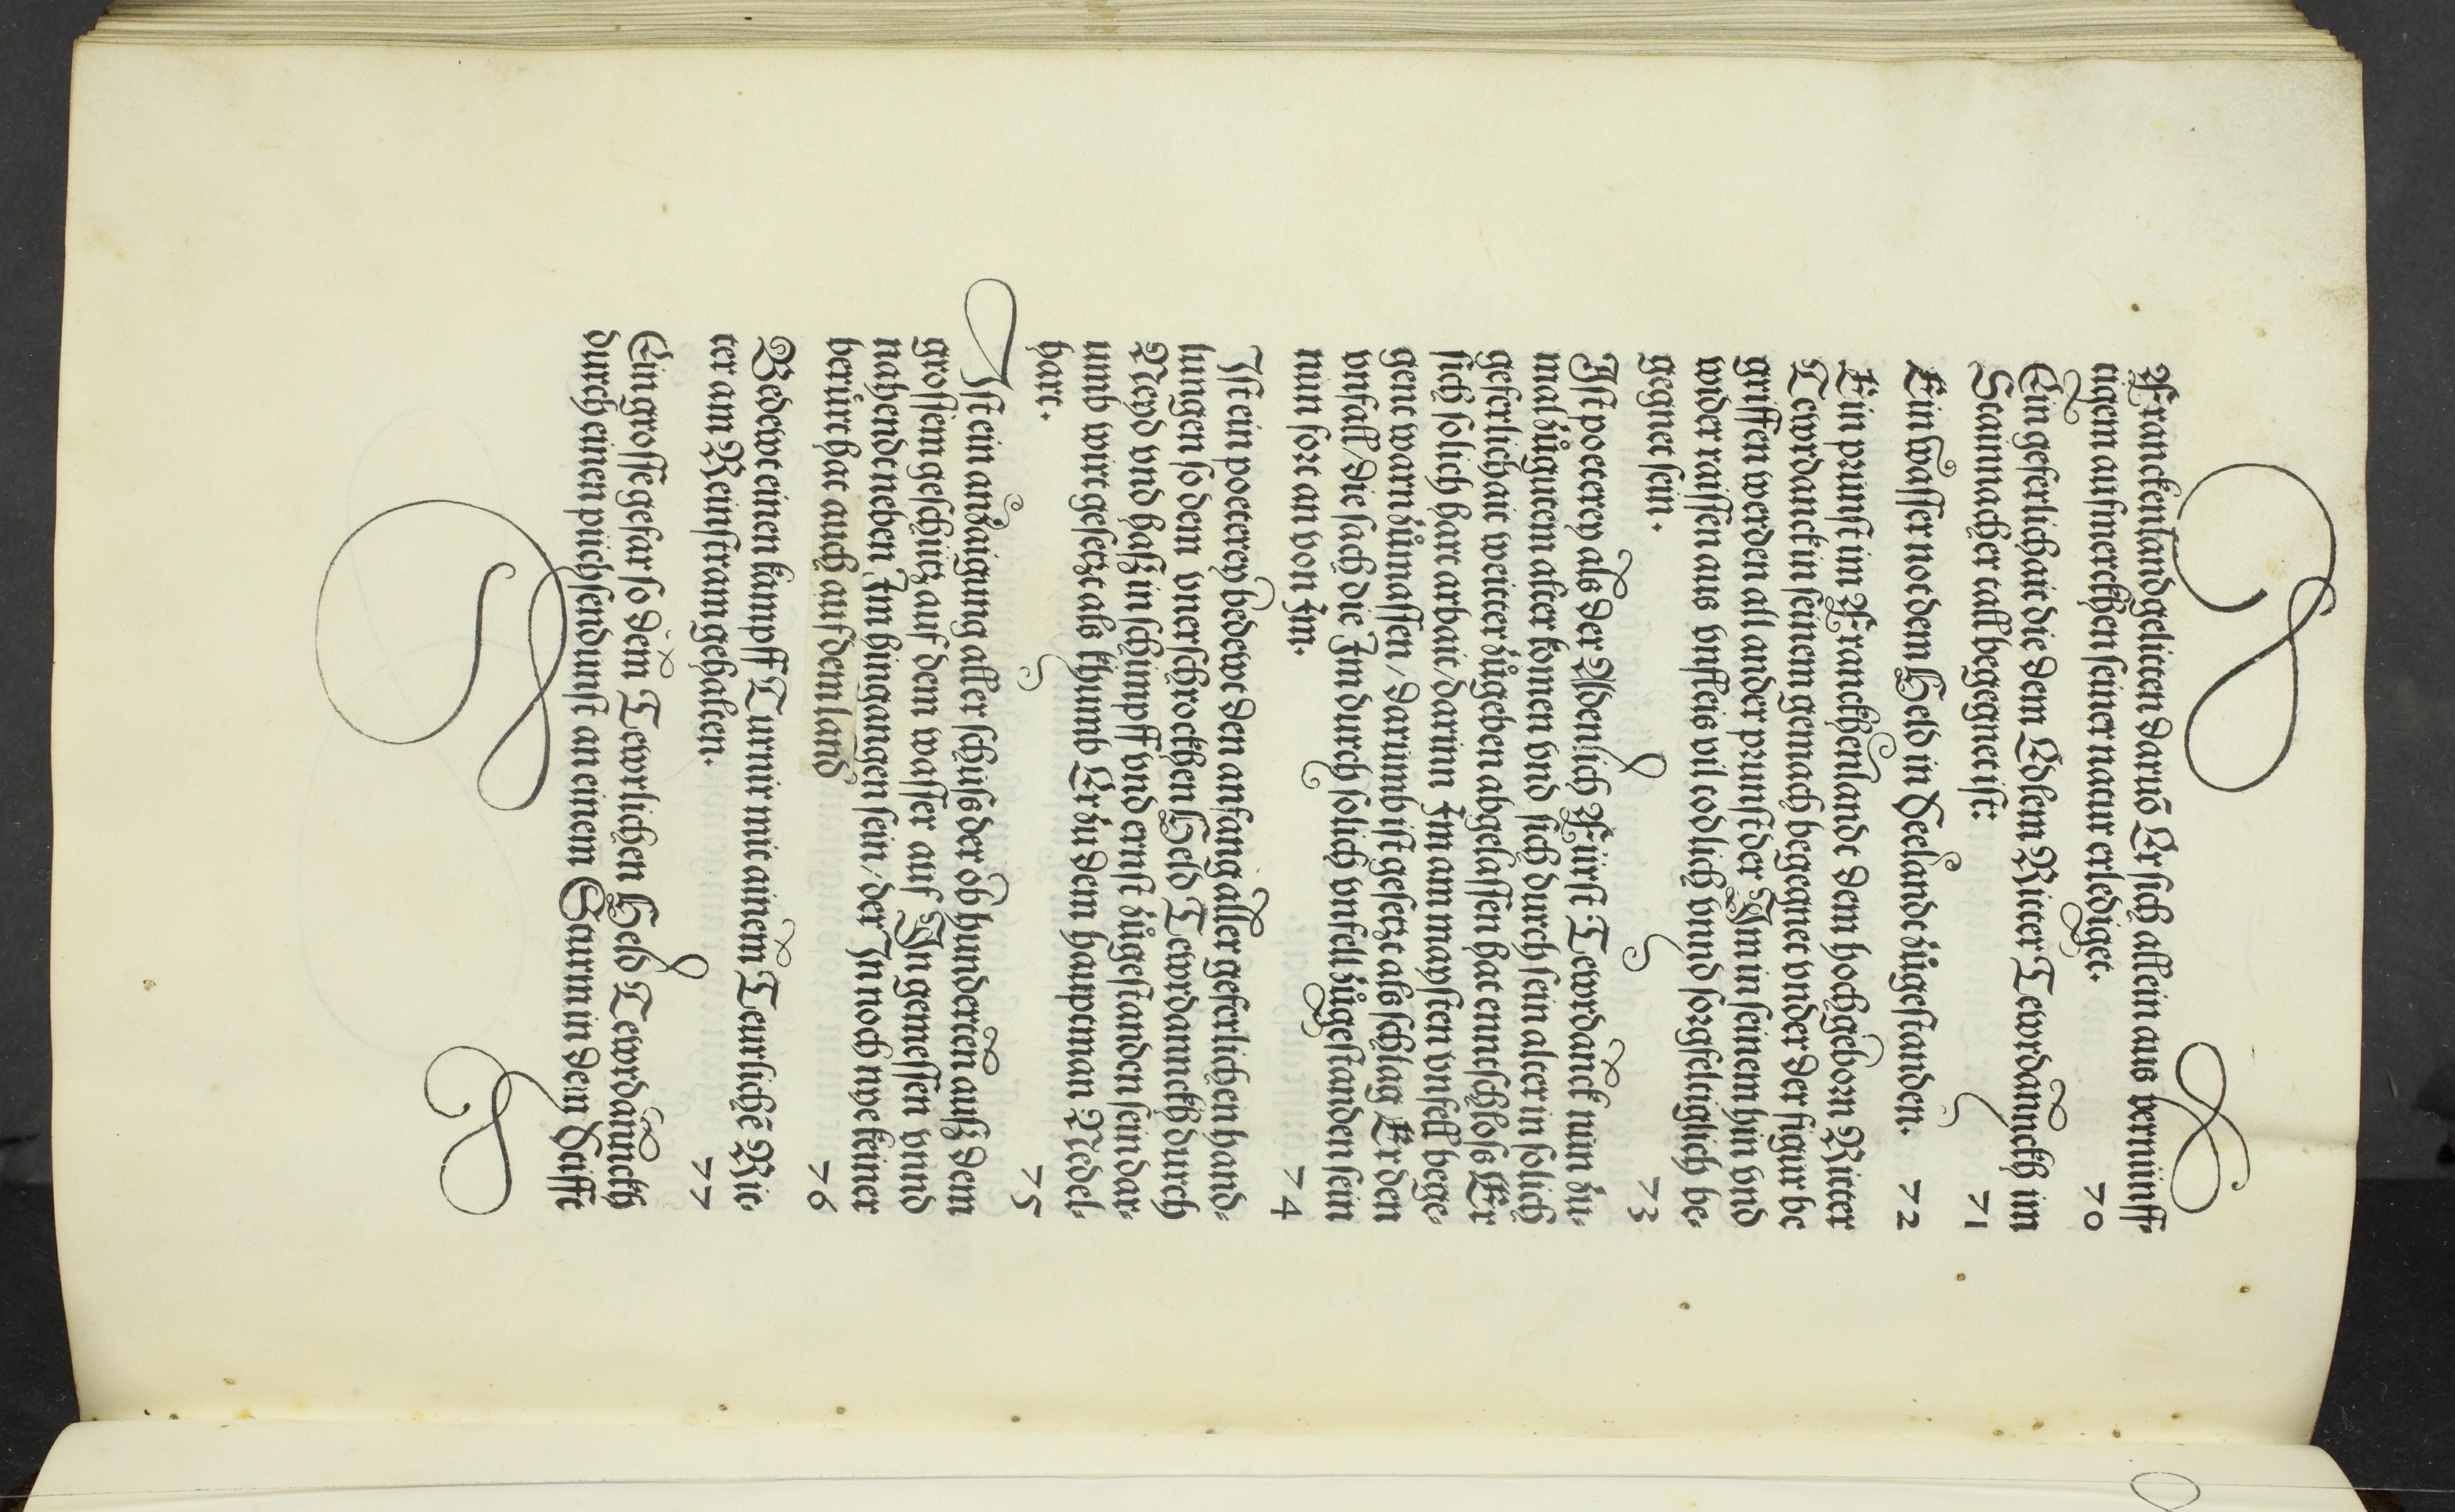 Franckenland gelitten darūb Er sich allein aus vernunff-
tigem aufmerckhen seiner natur erlediget.
70
Ein geferlichait die dem Edlem Ritter Tewrdannckh im
Stainnacher tall begegnet ist:
71
Ein wasser not dem Held in Seelandt zůgestanden.
72
Ein prunst im Franckhenlandt dem hochgeborn Ritter
Tewrdanck in seinem gemach begegnet vnder der figur be
griffen werden all ander prunst der Im in seinem hin vnd
wider raissen aus vnfleis vil todlich vnnd sorgfeltigklich be-
gegnet sein.
73
Ist poetterey als der Adenlich Fürst Tewrdanck nun zu-
mal zůgutem alter komen vnd sich durch sein alter in solich
geferlichait weitter zůgeben abgelassen hat enntschlos Er
sich solich hart arbait/darinn Im am maysten vnfell bege-
gent warn zůmassen/darumb ist gesetzt als schlag Er den
vnfall/die sach die Im durch solich vnfell zůgestanden sein
nun fort an von Im.
74
Ist ein poetterey bedewt den anfang aller geferlichen hand-
lungen so dem vnerschrockhen Held Tewrdannckh durch
Neyd vnd haß in schimpff vnd ernst zůgestanden sein dar-
umb wirt gesetzt als khumb Er zu dem hauptman Neydel-
hart.
75
Ist ein anzaigung aller schuß der ob hunderten auß dem
grossem geschütz auf dem wasser auf In gemessen vnnd
nahendt neben Im hingangen sein/der In noch nye keiner
berürt hat auch auf dem land
76
Bedewt einen kampff Turnir mit ainem Teurlichē Rit-
ter am Reinstram gehalten.
77
Ein grosse gefar so dem Tewrlichen Held Tewrdannckh
durch einen püchsendunst an einem Sturm in dem Stifft